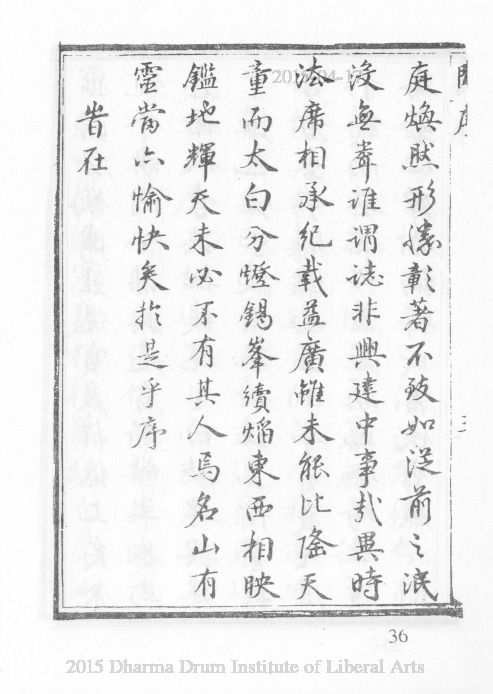 庭煥然形勝彰著不致如従前之泯
沒無聞誰謂誌非興建中事哉異時
法席相承紀載益廣雖未能比隆天
童而太白分燈錫峯續焰東西相映
鑑地輝天未必不有其人焉名山有
靈當亦愉快矣於是乎序
旹在
三
36
2015 Dharma Drum Institute of Liberal Arts